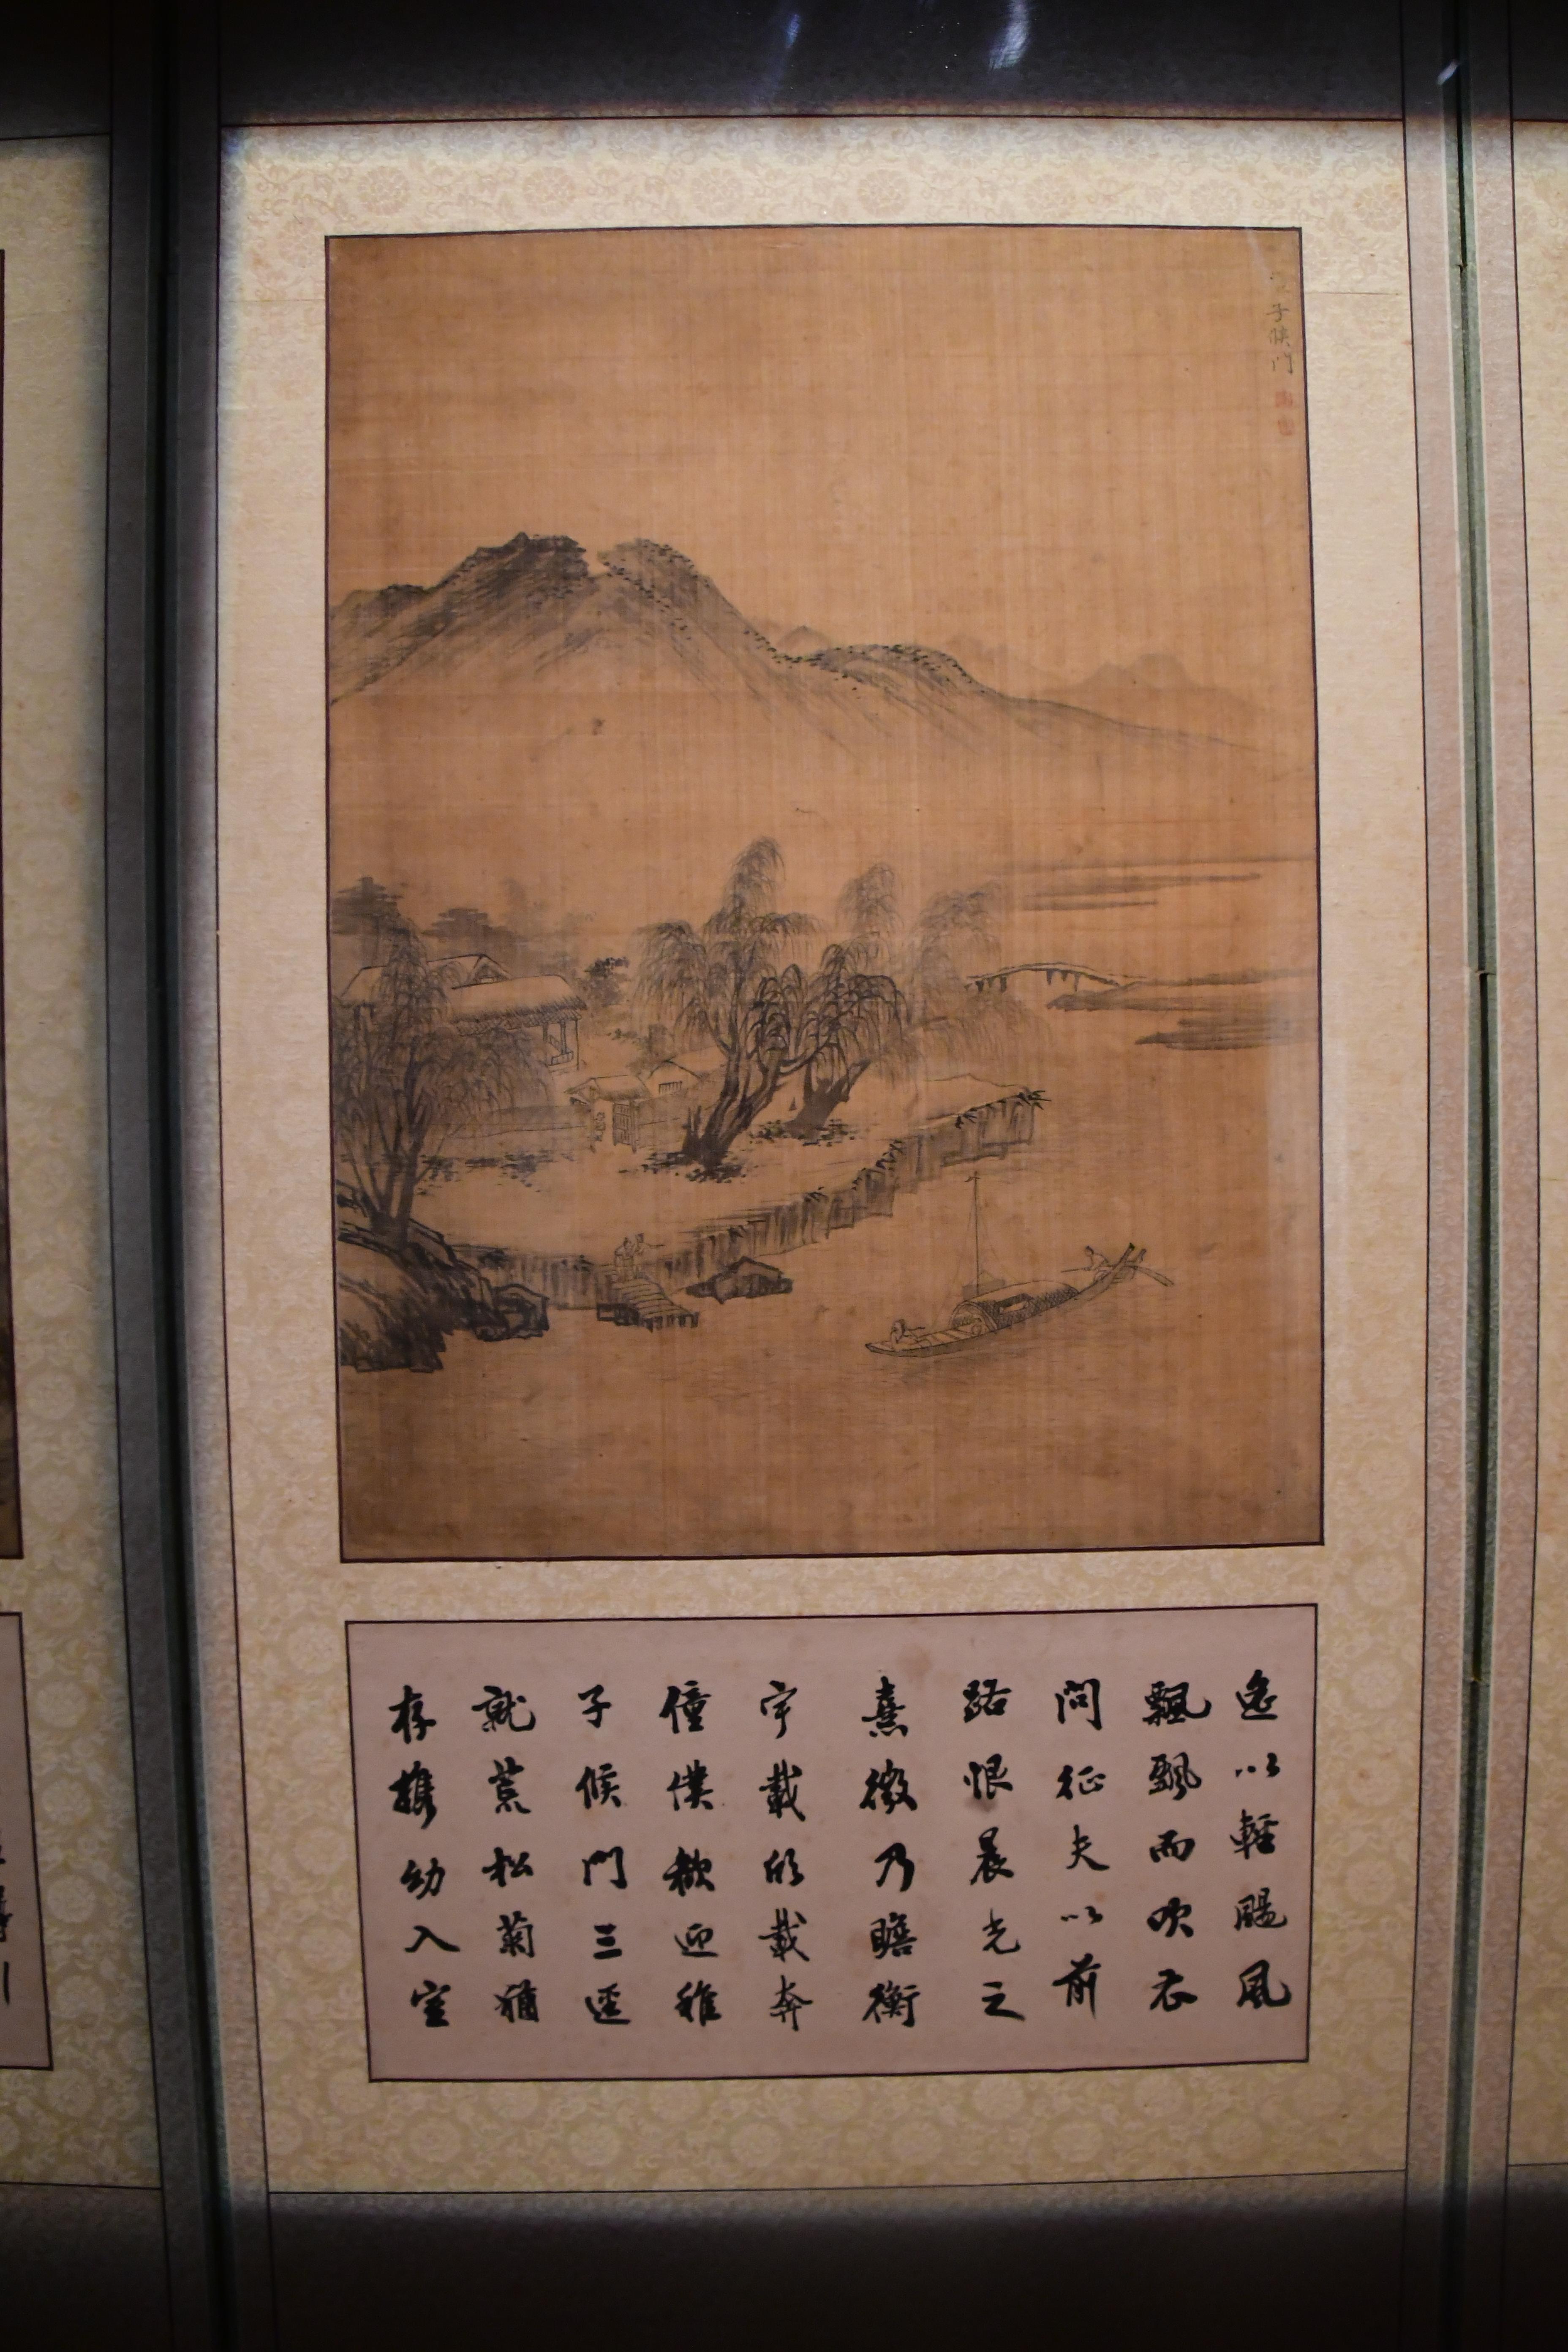 子候門
遙以輕颺風
飄飄而吹衣
問征夫以前
路恨晨光之
熹微乃瞻衡
宇載欣載奔
僮僕歡迎稚
子候門三逕
就荒松菊猶
存携幼入室